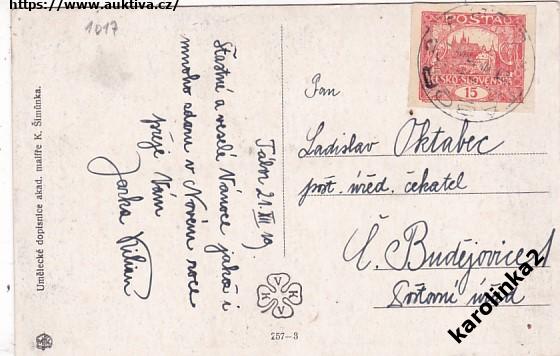 https://www.auktiva.cz/
1017
Umělecké dopisnice akad. malíře K. Šimůnka.
Tábor 21. XII 19.
Šťastné a veselé Vánoce jakož i
mnoho zdaru v Novém roce
přeje Vám
Jarka Kilián
POŠTA
ČESKO-SLOVENSKÁ
15
Pan
Ladislav Oktabec
pošt. úřed. čekatel
Č. Budějovice 1
Poštovní úřad
V
K K
V
257-3
karolinka2